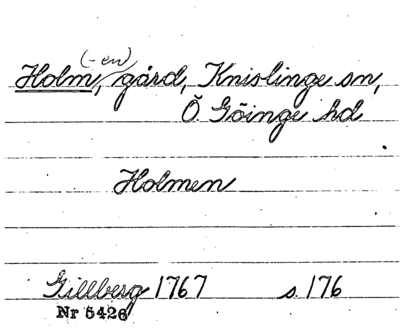 (-en)
Holm, gård, Knislinge sn,
Ö. Göinge hd
Holmen
Gillberg 1767 s. 176
Nr 5426